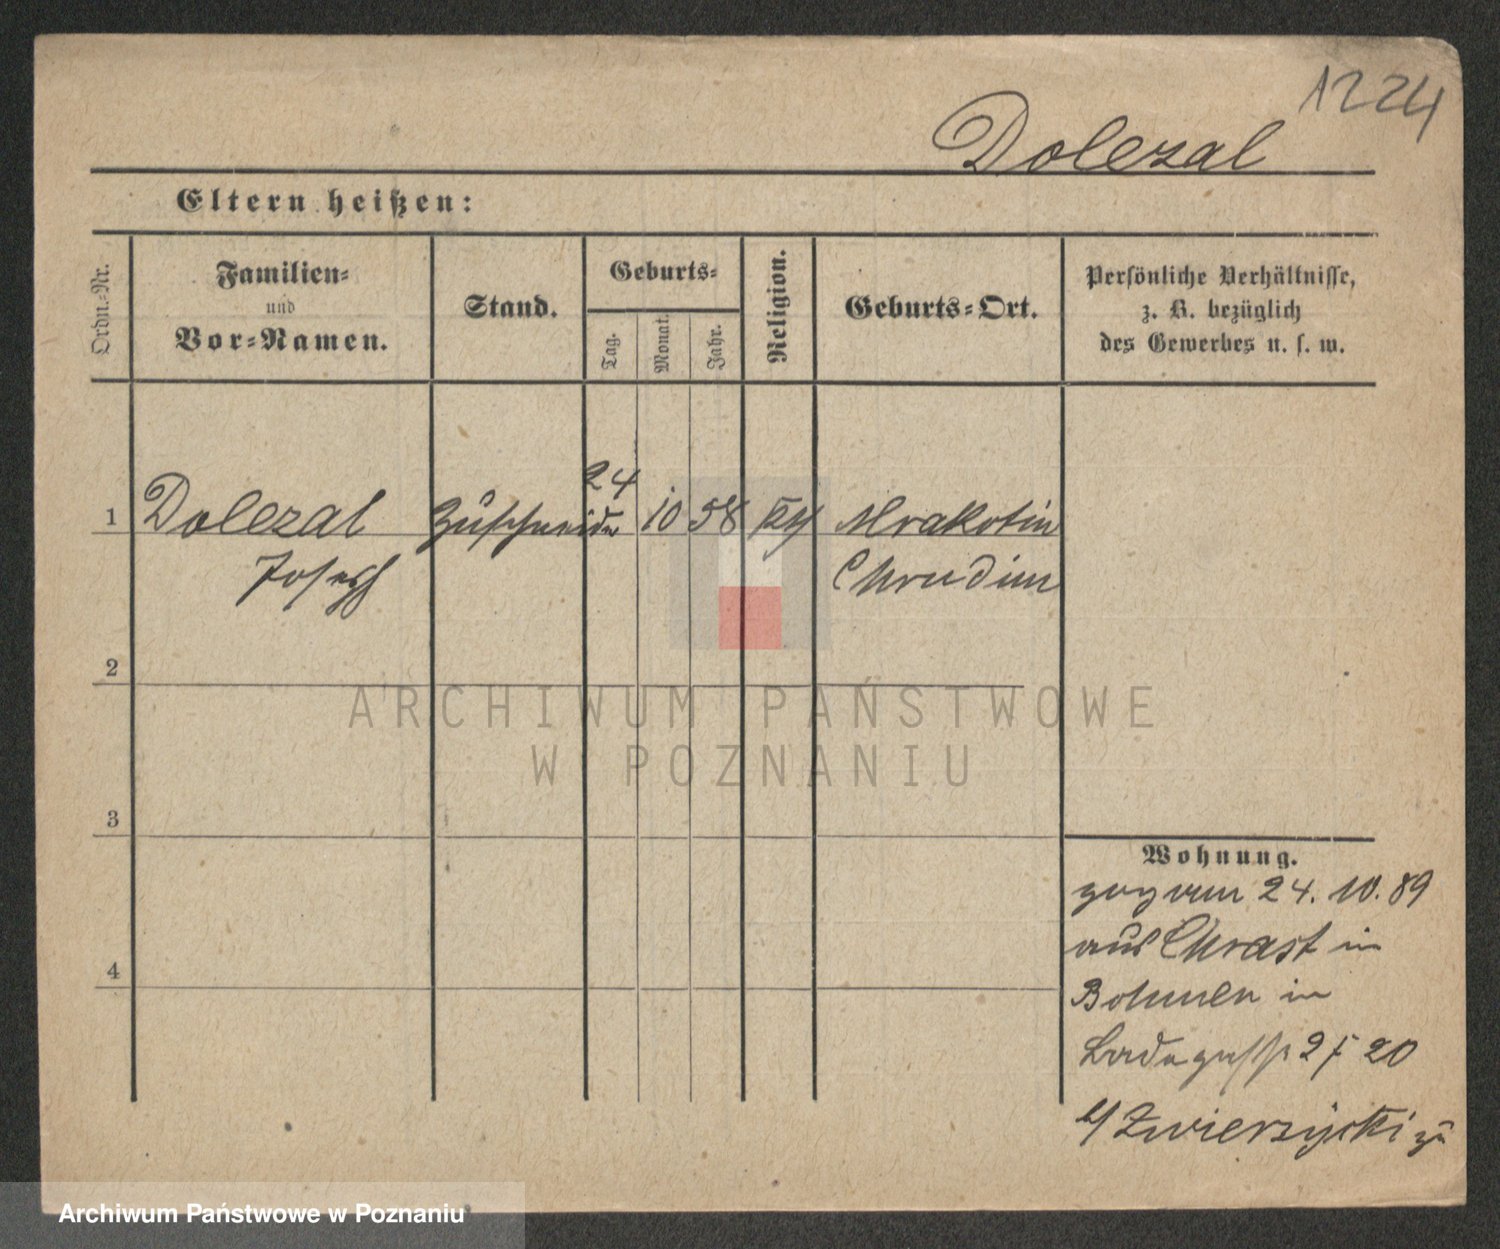 1224
Dolezal
Eltern heißen:
Ordn.-Nr.
Familien-
und
Vor-Namen.
Stand.
Geburts-
Tag.
Monat.
Jahr.
Religion.
Geburts-Ort.
Persönliche Verhältnisse,
z. B. bezüglich
des Gewerbes u. s. w.
24
1 Dolezal Zuschneider 10 58 kth Mrakotin
Joseph Chrudim
2
3
4
ARCHIWUM PAŃSTWOWE
W POZNANIU
Wohnung.
zog vom 24. 10. 89
aus Chrast in
Bohmen in
20
b/ Zwierzycki zu
Archiwum Państwowe w Poznaniu